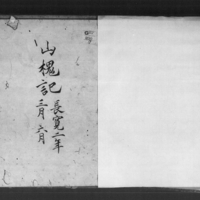 山槐記
長寛二年
三月 六月